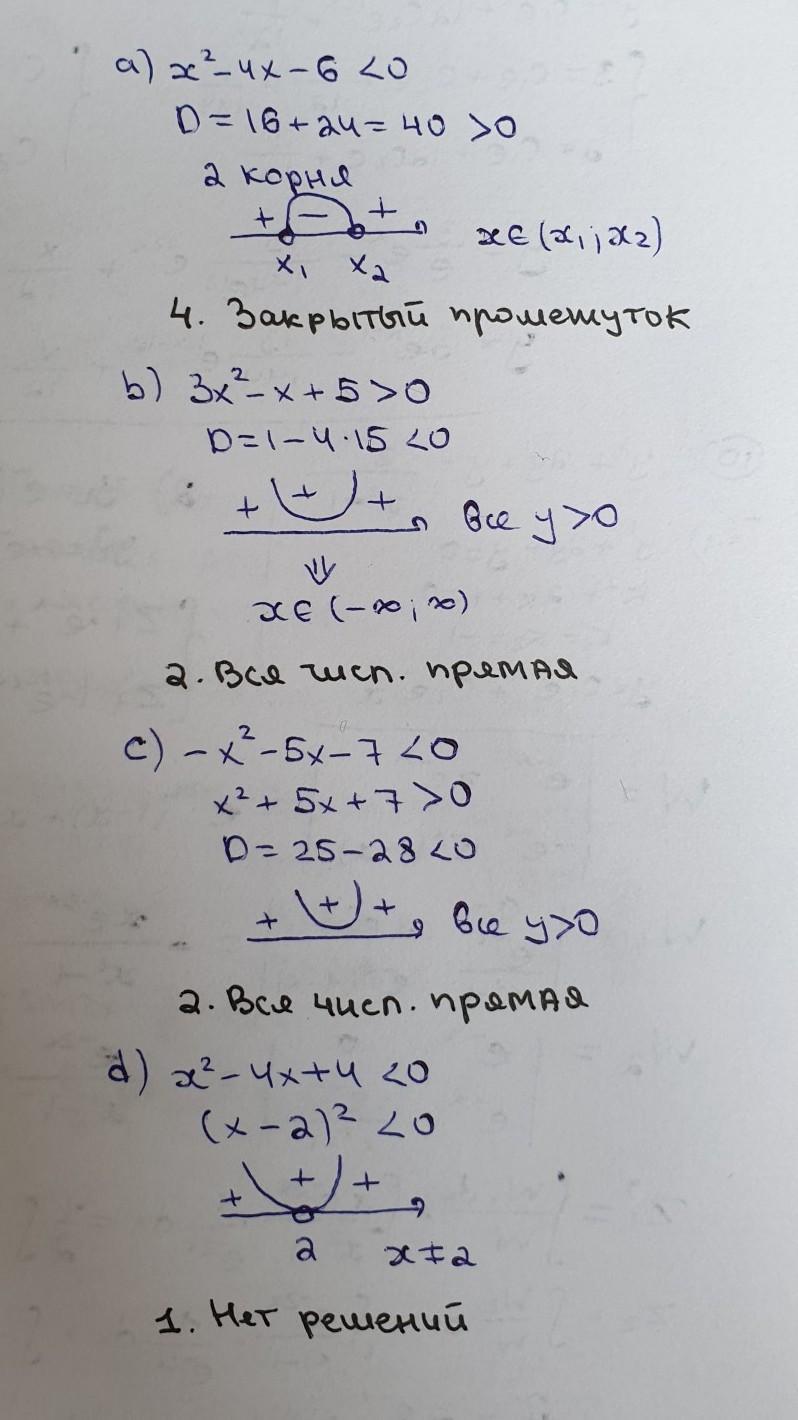 a) x²-4x-6 <0
D=16+24=40 >0
2 корня
+ - +
x₁ x₂ x∈(x₁;x₂)
4. Закрытый промежуток
b) 3x²-x+5>0
D=1-4·15 <0
+ + + все y>0
⇓
x∈(-∞;∞)
2. Вся числ. прямая
c) -x²-5x-7 <0
x²+5x+7>0
D=25-28<0
+ + + все y>0
2. Вся числ. прямая
d) x²-4x+4 <0
(x-2)² <0
+ + +
2 x≠2
1. Нет решений